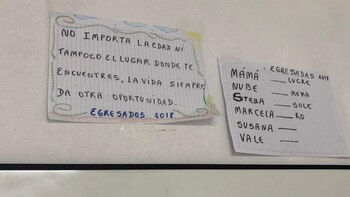 NO IMPORTA LA EDAD NI
TAMPOCO EL LUGAR DONDE TE
ENCUENTRES, LA VIDA SIEMPRE
DA OTRA OPORTUNIDAD.
EGRESADOS 2018
EGRESADAS 2018
MAMÁ ___ LUCRE
NUBE ___ MERR
STELLA ___ SOLE
MARCELA ___ RO
SUSANA ___
VALE ___